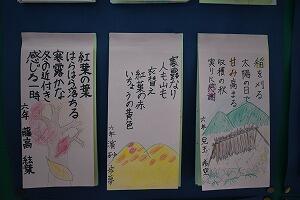 稲を刈る
太陽の日で
甘み高まる
収穫の秋
実りに感謝
六年 児玉
寒露なり
人も山も
衣替え
紅葉の赤
いちょうの黄色
六年 濱砂
紅葉の葉
はらはら落ちる
寒露かな
冬の近付き
感じる一時
六年 結葉